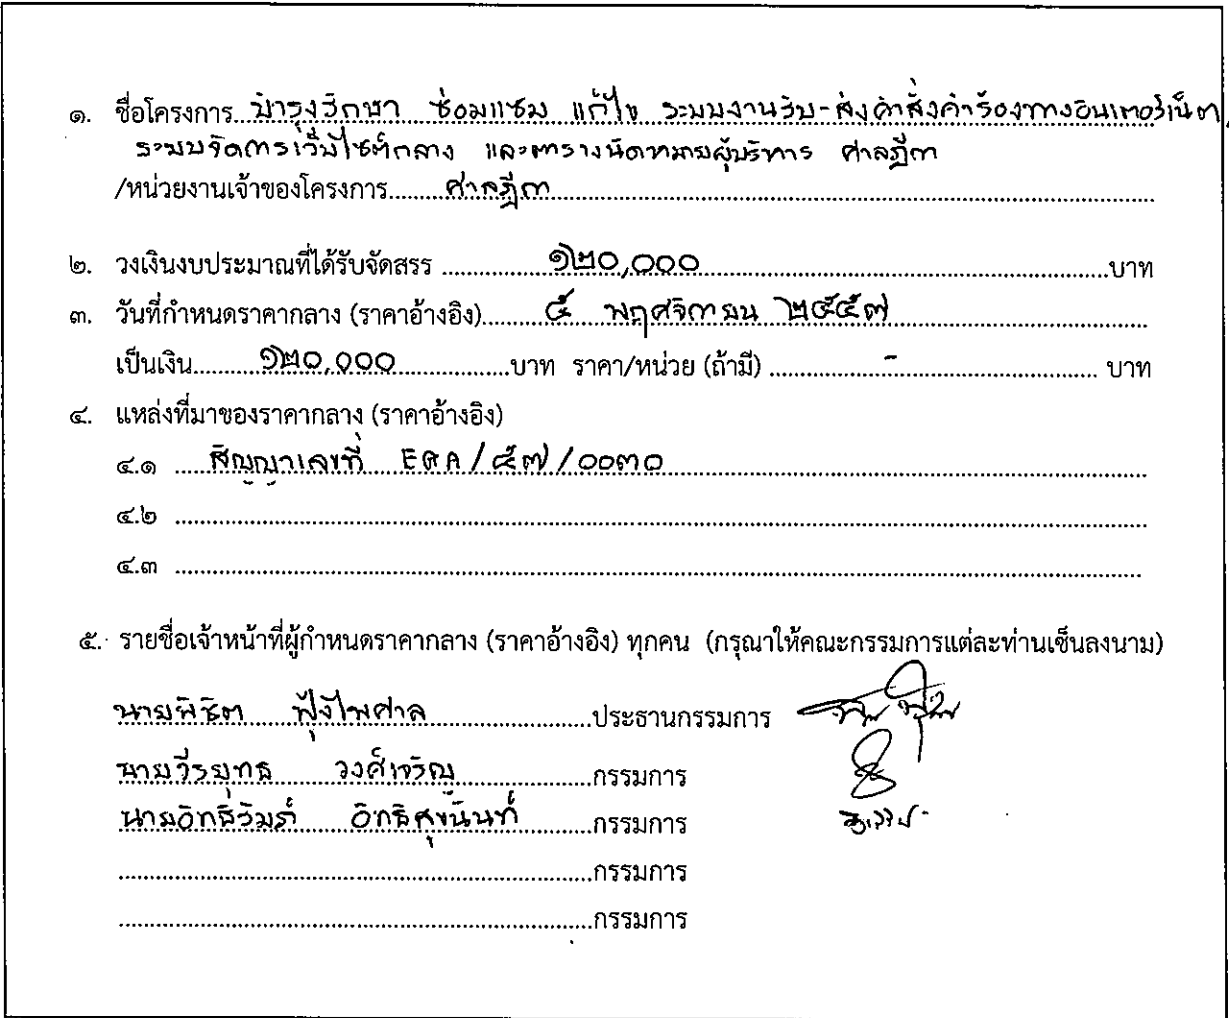 ๑. ชื่อโครงการ บำรุงรักษา ซ่อมแซม แก้ไข ระบบงานรับ-ส่งคำสั่งคำร้องทางอินเตอร์เน็ต,
ระบบจัดการเว็บไซต์กลาง และตารางนัดหมายผู้บริหาร ศาลฎีกา
/หน่วยงานเจ้าของโครงการ ศาลฎีกา
๒. วงเงินงบประมาณที่ได้รับจัดสรร ๑๒๐,๐๐๐ บาท
๓. วันที่กำหนดราคากลาง (ราคาอ้างอิง) ๕ พฤศจิกายน ๒๕๕๗
เป็นเงิน ๑๒๐,๐๐๐ บาท ราคา/หน่วย (ถ้ามี) - บาท
๔. แหล่งที่มาของราคากลาง (ราคาอ้างอิง)
๔.๑ สัญญาเลขที่ EGA/๕๗/๐๐๓๐
๔.๒
๔.๓
๕. รายชื่อเจ้าหน้าที่ผู้กำหนดราคากลาง (ราคาอ้างอิง) ทุกคน (กรุณาให้คณะกรรมการแต่ละท่านเซ็นลงนาม)
นายพิชิต ฟุ้งไพศาล ประธานกรรมการ
นายวีรยุทธ วงศ์เจริญ กรรมการ
นายอิทธิวัมภ์ อิทธิสุขนันท์ กรรมการ
กรรมการ
กรรมการ